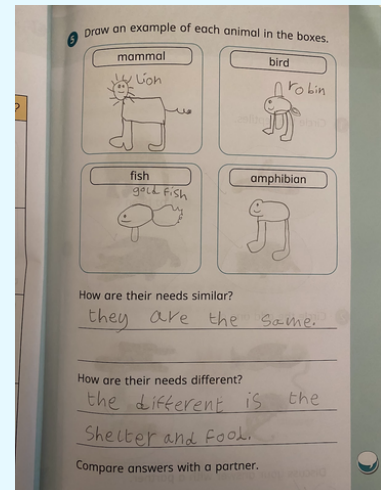 5 Draw an example of each animal in the boxes.
mammal
lion
bird
robin
fish
gold fish
amphibian
How are their needs similar?
they are the same.
How are their needs different?
the different is the
Shelter and Food.
Compare answers with a partner.